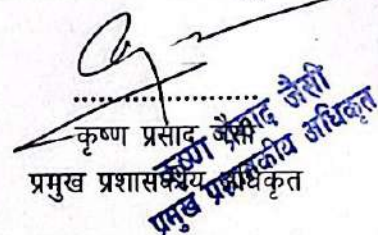 ....................
कृष्ण प्रसाद जैसी
प्रमुख प्रशासकीय अधिकृत
कृष्ण प्रसाद जैसी
प्रमुख प्रशासकीय अधिकृत